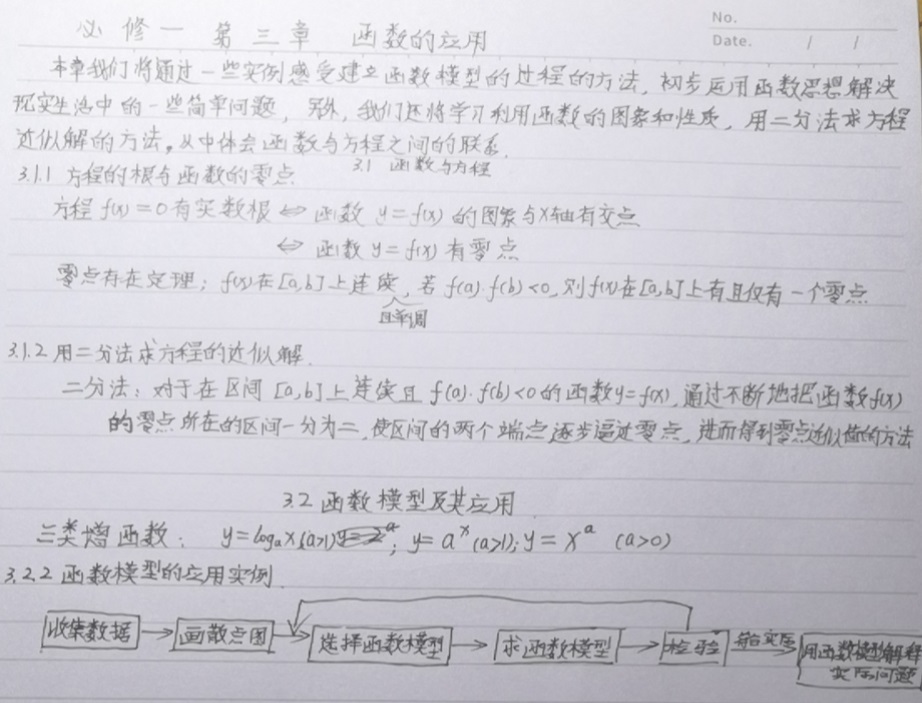 No.
Date. / /
必修一 第三章 函数的应用
本章我们将通过一些实例感受建立函数模型的过程的方法,初步运用函数思想解决
现实生活中的一些简单问题,另外,我们还将学习利用函数的图象和性质,用二分法求方程
近似解的方法,从中体会函数与方程之间的联系.
3.1 函数与方程
3.1.1 方程的根与函数的零点
方程 f(x)=0有实数根 ⇔ 函数 y=f(x) 的图象与X轴有交点
⇔ 函数 y=f(x) 有零点
零点存在定理:f(x)在[a,b]上连续,若 f(a)·f(b)<0,则f(x)在[a,b]上有且仅有一个零点
且单调
3.1.2 用二分法求方程的近似解.
二分法:对于在区间 [a,b]上连续且 f(a)·f(b)<0的函数y=f(x),通过不断地把函数f(x)
的零点所在的区间一分为二,使区间的两个端点逐步逼近零点,进而得到零点近似值的方法
3.2 函数模型及其应用
三类增函数: y=logₐx(a>1); y=aˣ(a>1); y=xᵃ (a>0)
3.2.2 函数模型的应用实例.
收集数据 → 画散点图 → 选择函数模型 → 求函数模型 → 检验 符合实际 用函数模型解释
实际问题